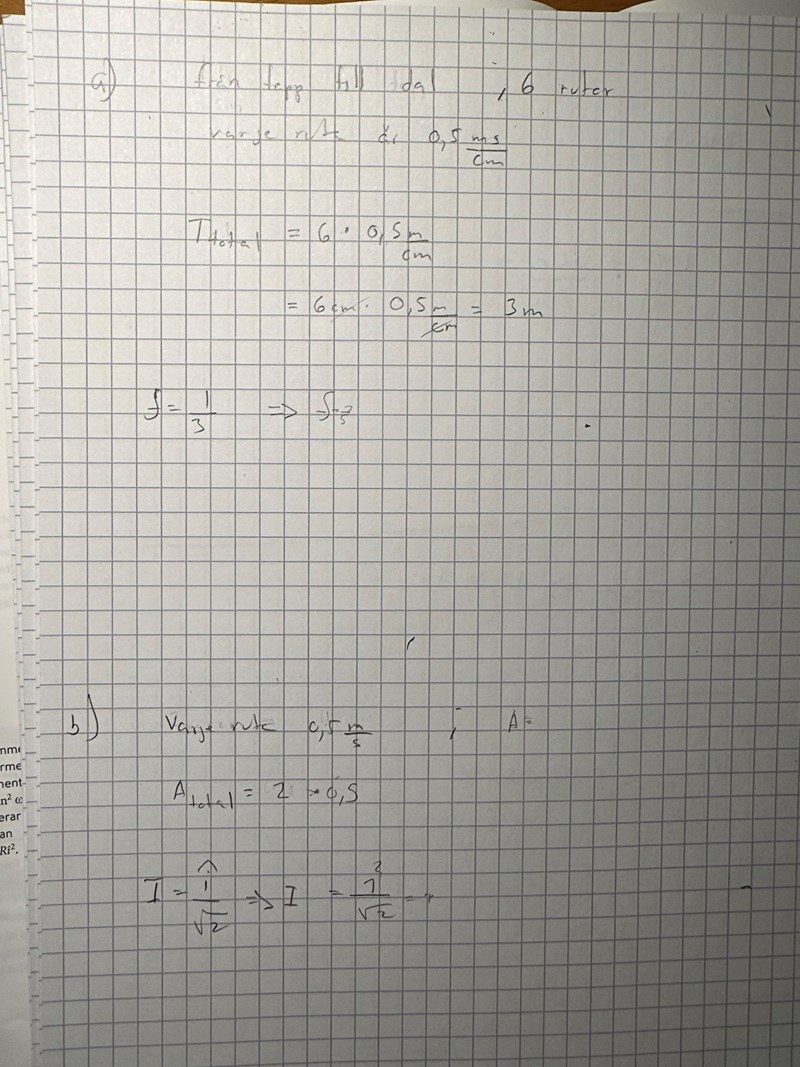 a) från topp till dal , 6 rutor
varje ruta är 0,5 ms/cm
T total = 6 · 0,5 m/cm
= 6 cm · 0,5 m/cm = 3 m
f = 1/3 => f =
b) Varje ruta 0,5 m/s ; A =
A total = 2 · 0,5
I = î/√2 => I = 1/√2 =
nme
rme
nent
n² ω
erar
an
Ri².